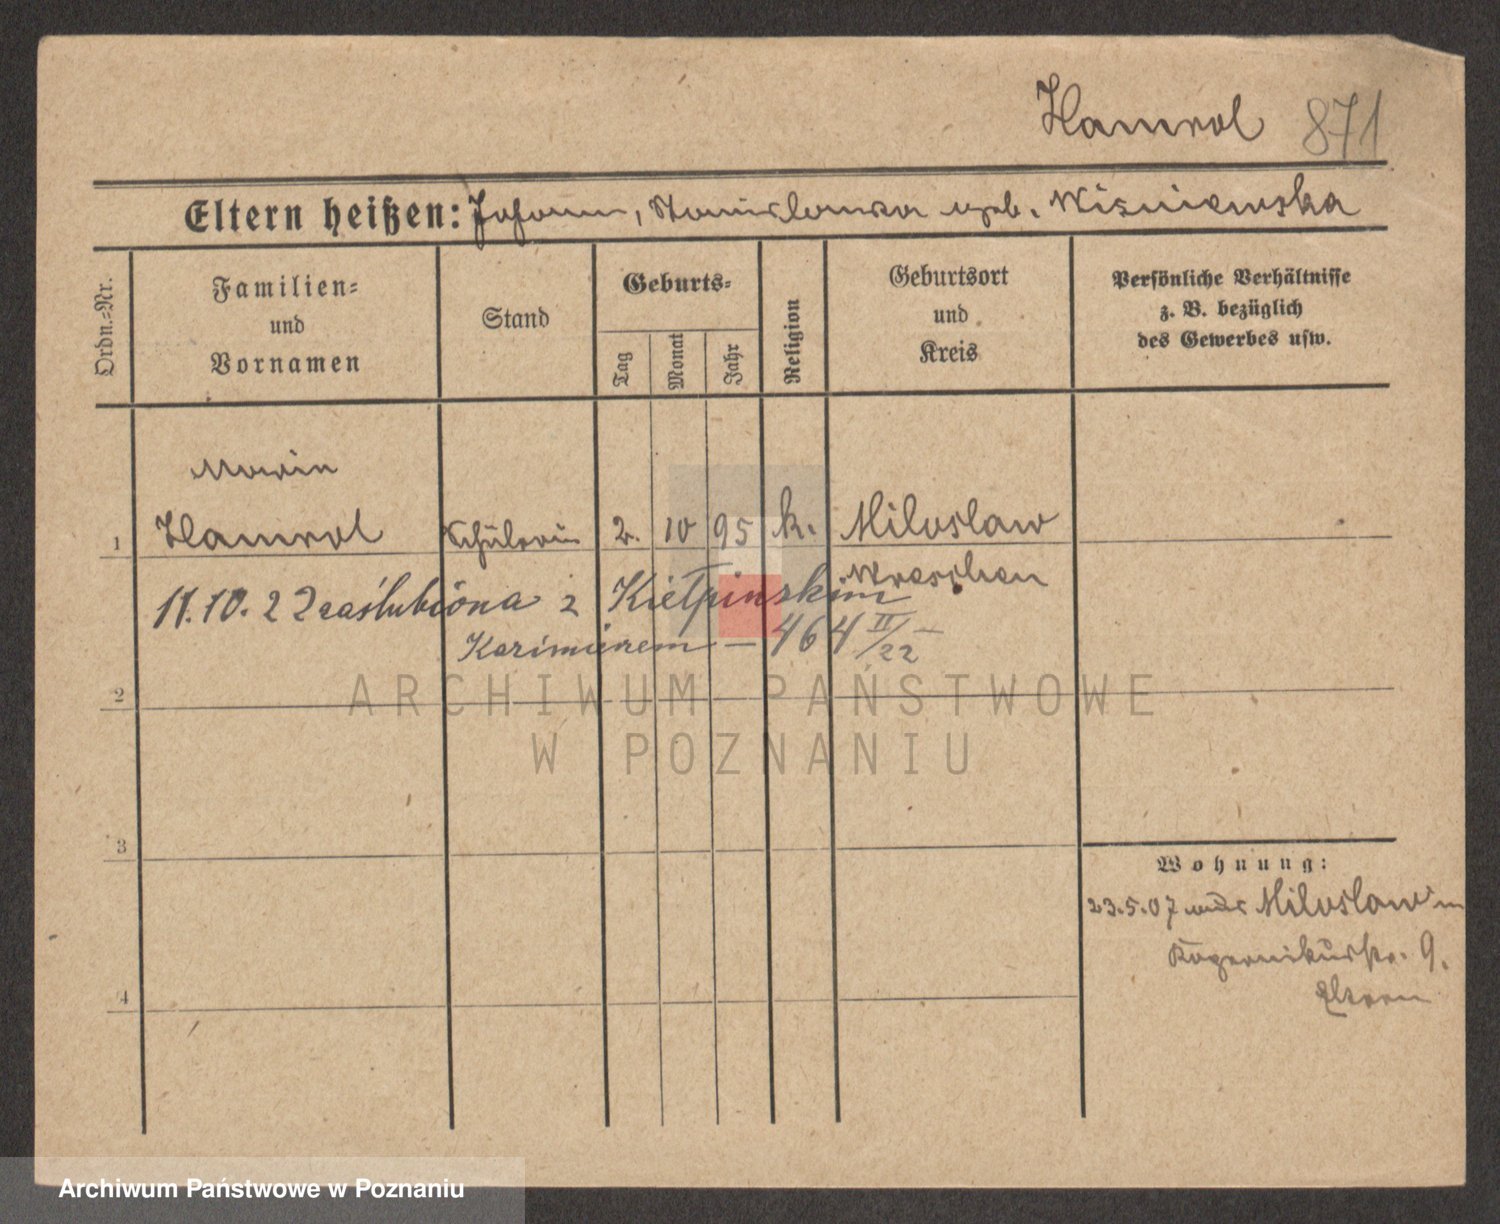 Hamrol 871
Eltern heißen: Johann, Stanislawa geb. Wisniewska
Ordn.=Nr.
Familien=
und
Vornamen
Stand
Geburts=
Tag
Monat
Jahr
Religion
Geburtsort
und
Kreis
Persönliche Verhältnisse
z. B. bezüglich
des Gewerbes usw.
Maria
1 Hamrol Schülerin 2. 10 95 k. Miloslaw
Wreschen
11.10.22 zaślubiona z Kiełpinskim
Kazimierzem — 464 II/22
2
3
4
Wohnung:
23.5.07 aus Miloslaw in
Kopernikusstr. 9.
Eltern
ARCHIWUM PAŃSTWOWE
W POZNANIU
Archiwum Państwowe w Poznaniu